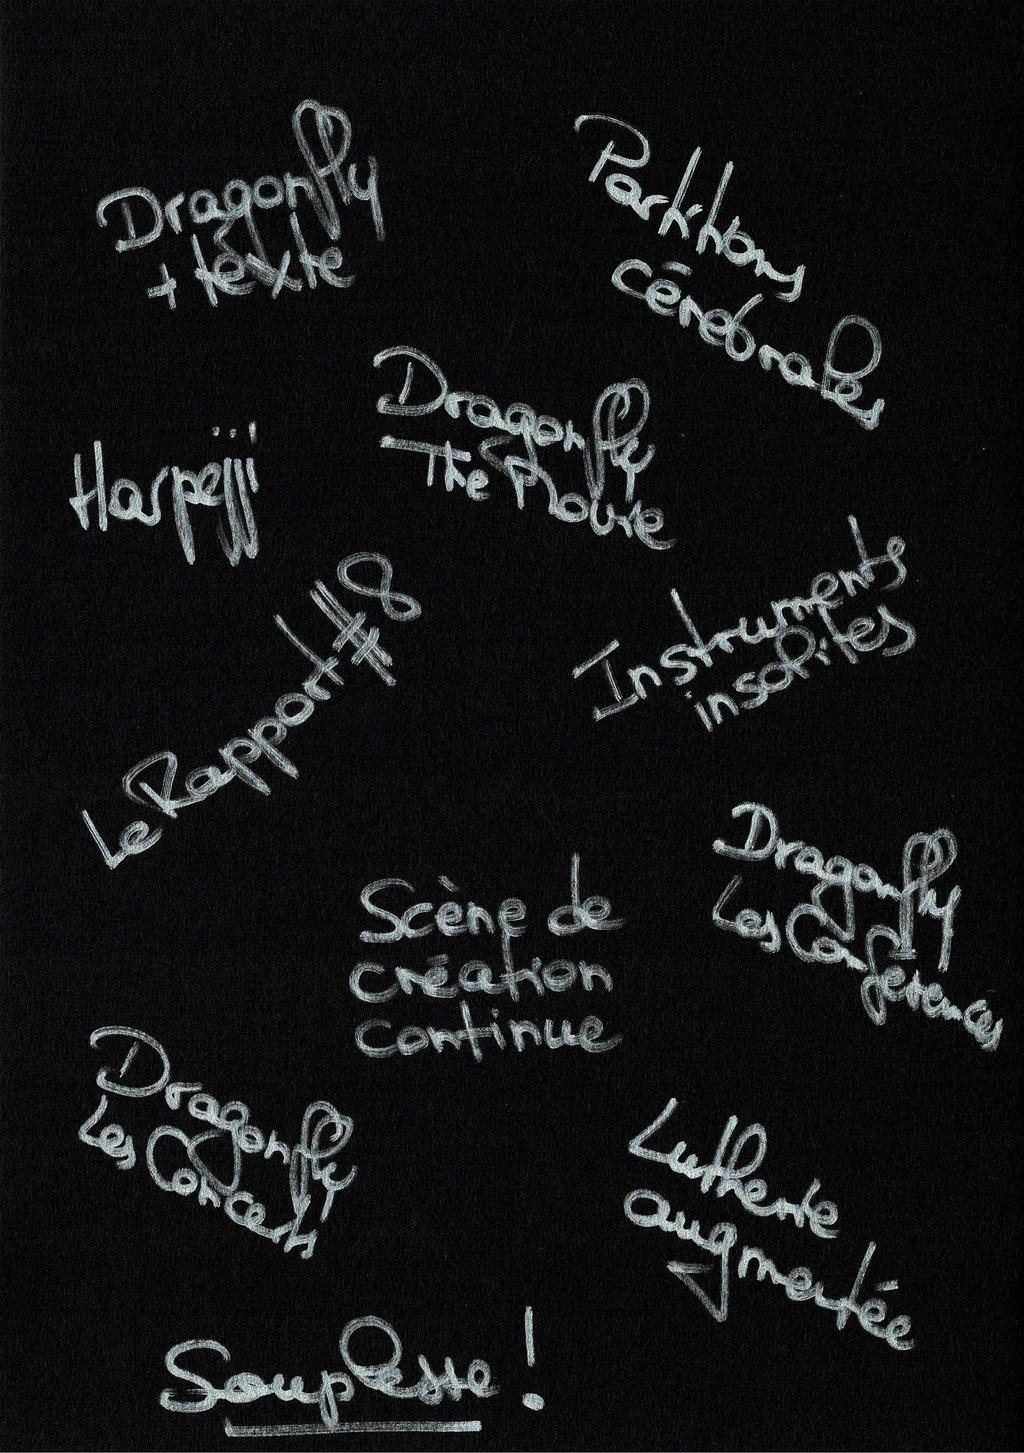 Dragonfly
+ texte
Partitions
cérébrales
Dragonfly
The Movie
Harpejji
Le Rapport #8
Instruments
insolites
Dragonfly
Les Conférences
Scène de
création
continue
Dragonfly
Les Concerts
Lutherie
augmentée
Souplesse !